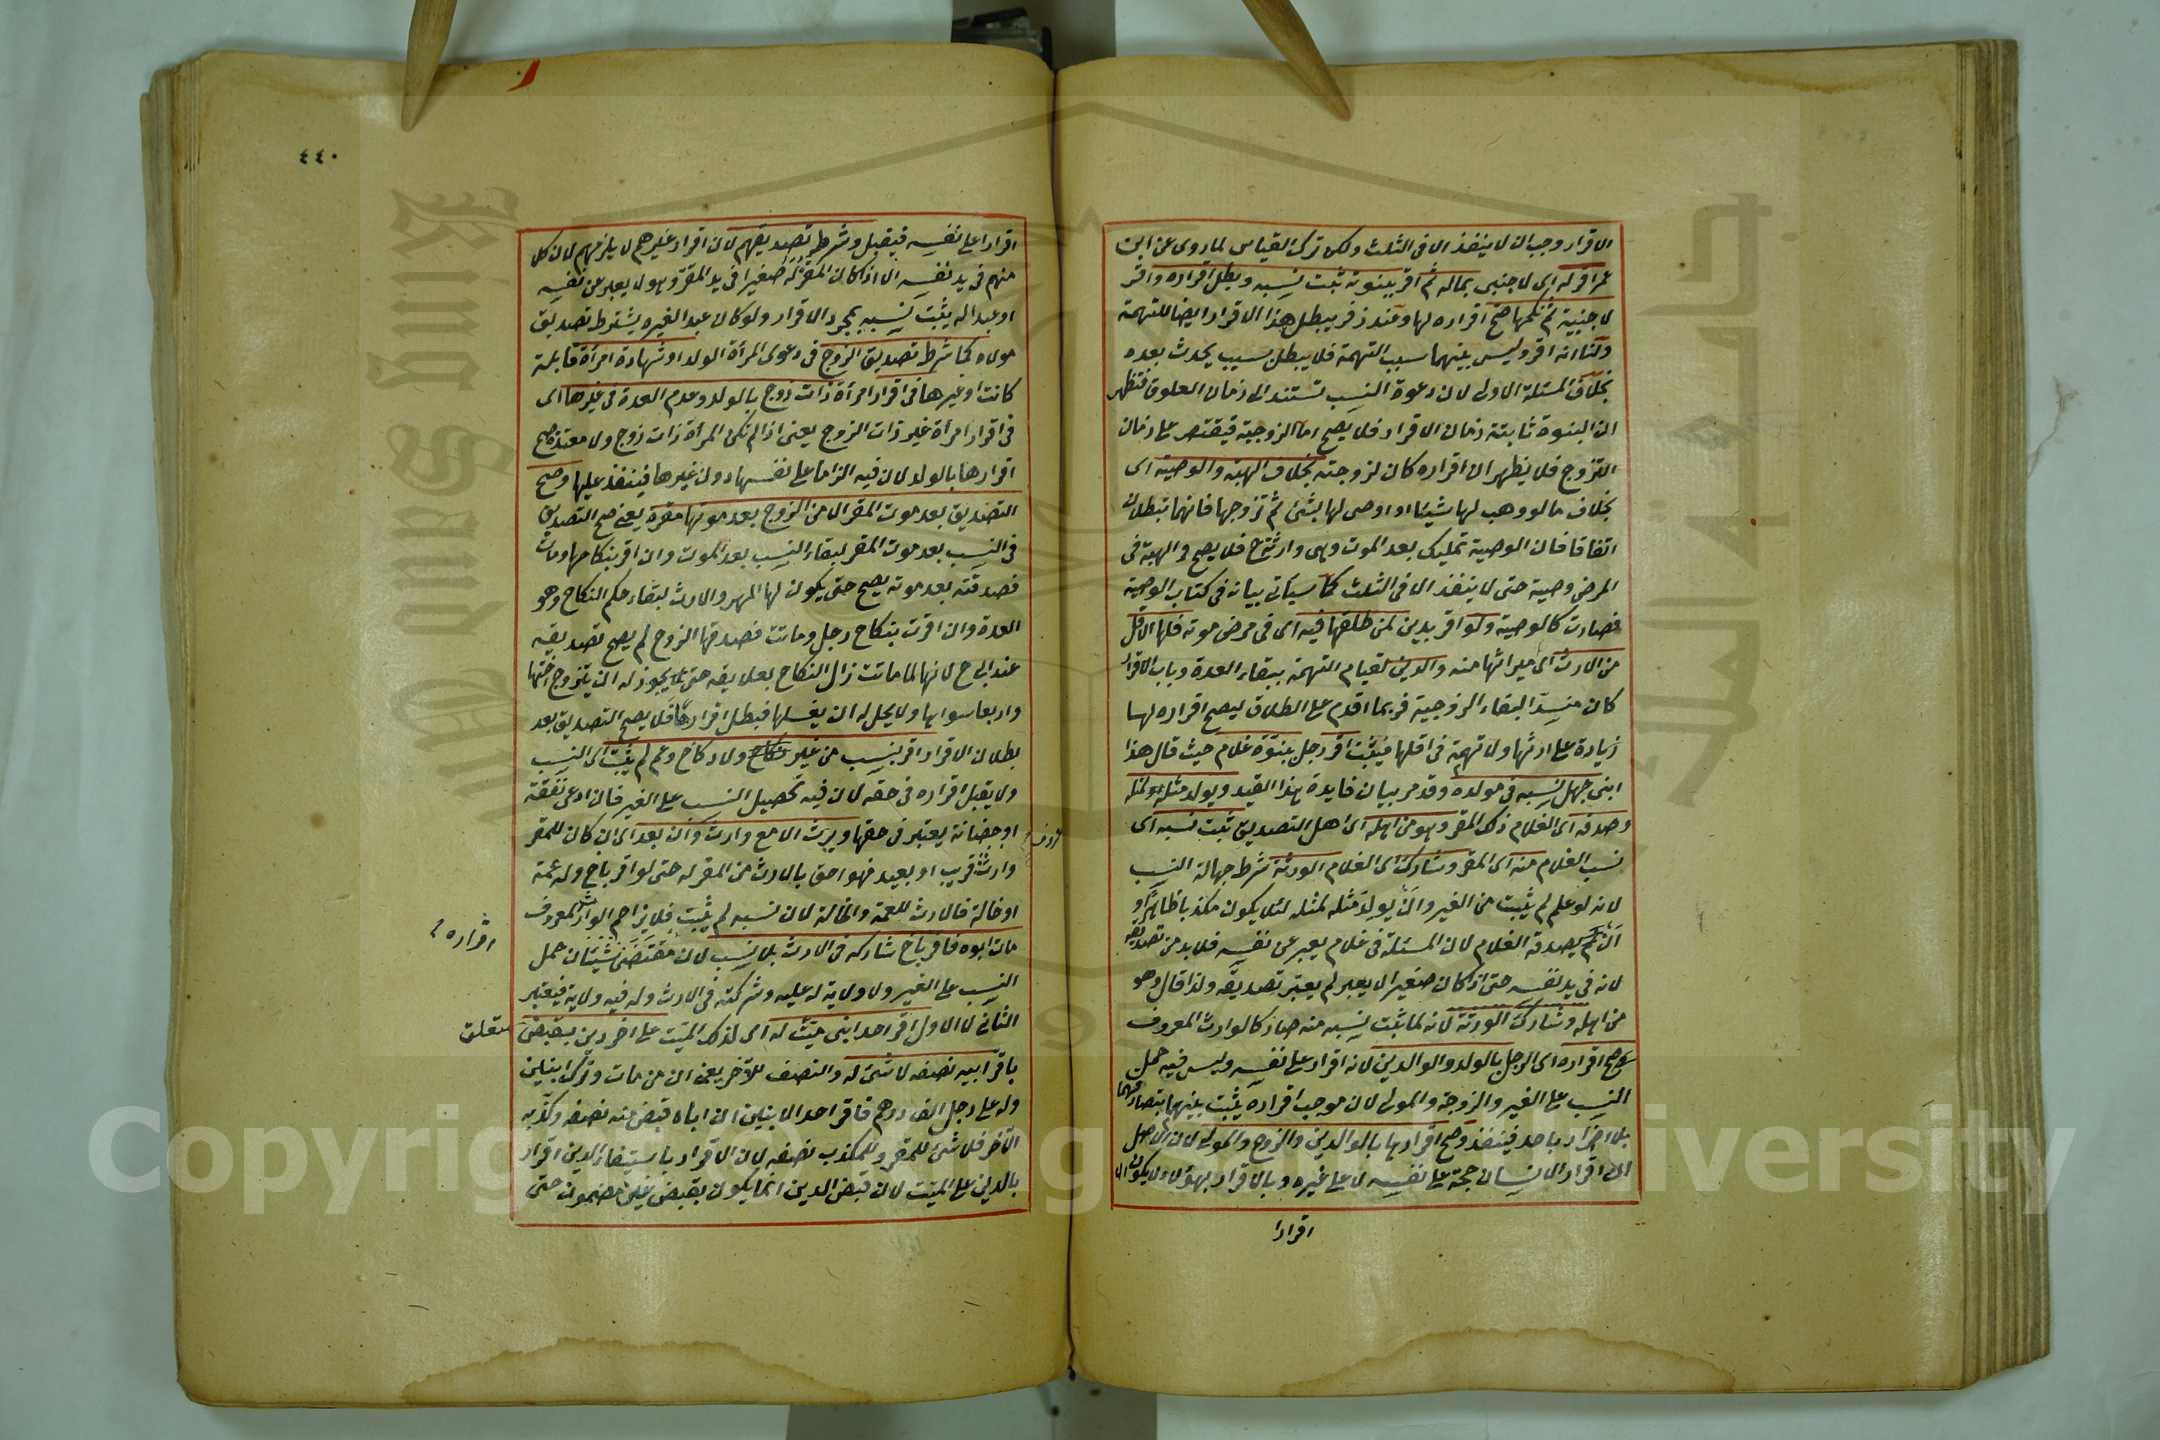 الاقرار وجب ان لا ينفذ الا فى الثلث ولكن ترك القياس لما روى عن ابن
عمر اقر له اى لاجنبى بماله ثم اقر ببنوته ثبت نسبه وبطل اقراره واقر
لاجنبية ثم نكحها صح اقراره لها وعند زفر يبطل هذا الاقرار ايضا للتهمة
ولنا انه اقر وليس بينهما سبب التهمة فلا يبطل بسبب يحدث بعده
بخلاف المسئلة الاولى لان دعوة النسب تستند الى زمان العلوق فتظهر
ان البنوة ثابتة زمان الاقرار فلا يصح اما الزوجية فيقتصر على زمان
التزوج فلا يظهر ان اقراره كان لزوجته بخلاف الهبة والوصية اى
بخلاف ما لو وهب لها شيئا او اوصى لها بشئ ثم تزوجها فانهما تبطلان
اتفاقا فان الوصية تمليك بعد الموت وهى وارثة ح فلا يصح والهبة فى
المرض وصية حتى لا ينفذ الا فى الثلث كما سيأتى بيانه فى كتاب الوصية
فصارت كالوصية ولو اقر بدين لمن طلقها فيه اى فى مرض موته فلها الاقل
من الارث اى ميراثها منه والدين لقيام التهمة ببقاء العدة وباب الاقرار
كان منسدا لبقاء الزوجية فربما اقدم على الطلاق ليصح اقراره لها
زيادة على ارثها ولا تهمة فى اقلها فيثبت اقر رجل ببنوة غلام حيث قال هذا
ابنى جهل نسبه فى مولده وقد مر بيان فايدة بهذا القيد ويولد مثله لمثله
وصدقه اى الغلام ذلك المقر وهو من اهله اى اهل التصديق ثبت نسبه اى
نسب الغلام منه اى المقر وشارك اى الغلام الورثة شرط جهالة النسب
لانه لو علم لم يثبت من الغير وان يولد مثله لمثله لئلا يكون مكذبا ظاهرا و
ان يصدقه الغلام لان المسئلة فى غلام يعبر عن نفسه فلا بد من تصديقه
لانه فى يد نفسه حتى اذا كان صغيرا لا يعبر لم يعتبر تصديقه ولذا قال وهو
من اهله وشارك الورثة لانه لما ثبت نسبه منه صار كالوارث المعروف
صح اقراره اى الرجل بالولد والوالدين لانه اقرار على نفسه وليس فيه حمل
النسب على الغير والزوجة والمولى لان موجب اقراره يثبت بينهما بتصادقهما
بلا اضرار باحد فينفذ وصح اقرارها بالوالدين والزوج والمولى لان الاصل
ان اقرار الانسان حجة على نفسه لا على غيره وبالاقرار بهؤلاء لا يكون الا
اقرارا
٤٤٠
اقرارا على نفسه فيقبل وشرط تصديقهم لان اقرار غيرهم لا يلزمهم لان كل
منهم فى يد نفسه الا اذا كان المقر له صغيرا فى يد المقر وهو لا يعبر عن نفسه
او عبدا له يثبت نسبه بمجرد الاقرار ولو كان عبدا لغيره يشترط تصديق
مولاه كما شرط تصديق الزوج فى دعوى المرأة الولد او شهادة امرأة قابلة
كانت او غيرها فى اقرار امرأة ذات زوج بالولد وعدم العدة فى غيرها اى
فى اقرار امرأة غير ذات الزوج يعنى اذا لم تكن المرأة ذات زوج ولا معتدة صح
اقرارها بالولد لان فيه الزاما على نفسها دون غيرها فينفذ عليها وصح
التصديق بعد موت المقر الا من الزوج بعد موتها مقرة يعنى صح التصديق
فى النسب بعد موت المقر لبقاء النسب بعد الموت وان اقر بنكاحها ومات
فصدقته بعد موته يصح حتى يكون لها المهر والارث لبقاء حكم النكاح وهو
العدة وان اقرت بنكاح رجل وماتت فصدقها الزوج لم يصح تصديقه
عند ابى ح لانها لما ماتت زال النكاح بعلايقه حتى يجوز له ان يتزوج اختها
واربعا سواها ولا يحل له ان يغسلها فبطل اقرارها فلا يصح التصديق بعد
بطلان الاقرار اقر بنسب من غير ولاد كاخ وعم لم يثبت اى النسب
ولا يقبل اقراره فى حقه لان فيه تحميل النسب على الغير فان ادعى نفقة
او حضانة يعتبر فى حقها ويرث الا مع وارث وان بعد اى ان كان للمقر
وارث قريب او بعيد فهو احق بالارث من المقر له حتى لو اقر باخ وله عمة
او خالة فالارث للعمة والخالة لان نسبه لم يثبت فلا يزاحم الوارث المعروف
مات ابوه فاقر باخ شاركه فى الارث بلا نسب لان مقتضى شيئان حمل
اقراره
النسب على الغير ولا ولاية له عليه وشركته فى الارث وله فيه ولاية فيعتبر
الثانى لا الاول اقر احد ابنى ميت له اى لذلك الميت على اخر دين بقبض
متعلق
باقر ابيه نصفه لا شئ له والنصف للآخر يعنى ان من مات وترك ابنين
وله على رجل الف درهم فاقر احد الابنين ان اباه قبض منه نصفه وكذبه
الآخر فلا شئ للمقر وللمكذب نصفه لان الاقرار باستيفاء الدين اقرار
بالدين على الميت لان قبض الدين انما يكون بقبض عين مضمون حتى